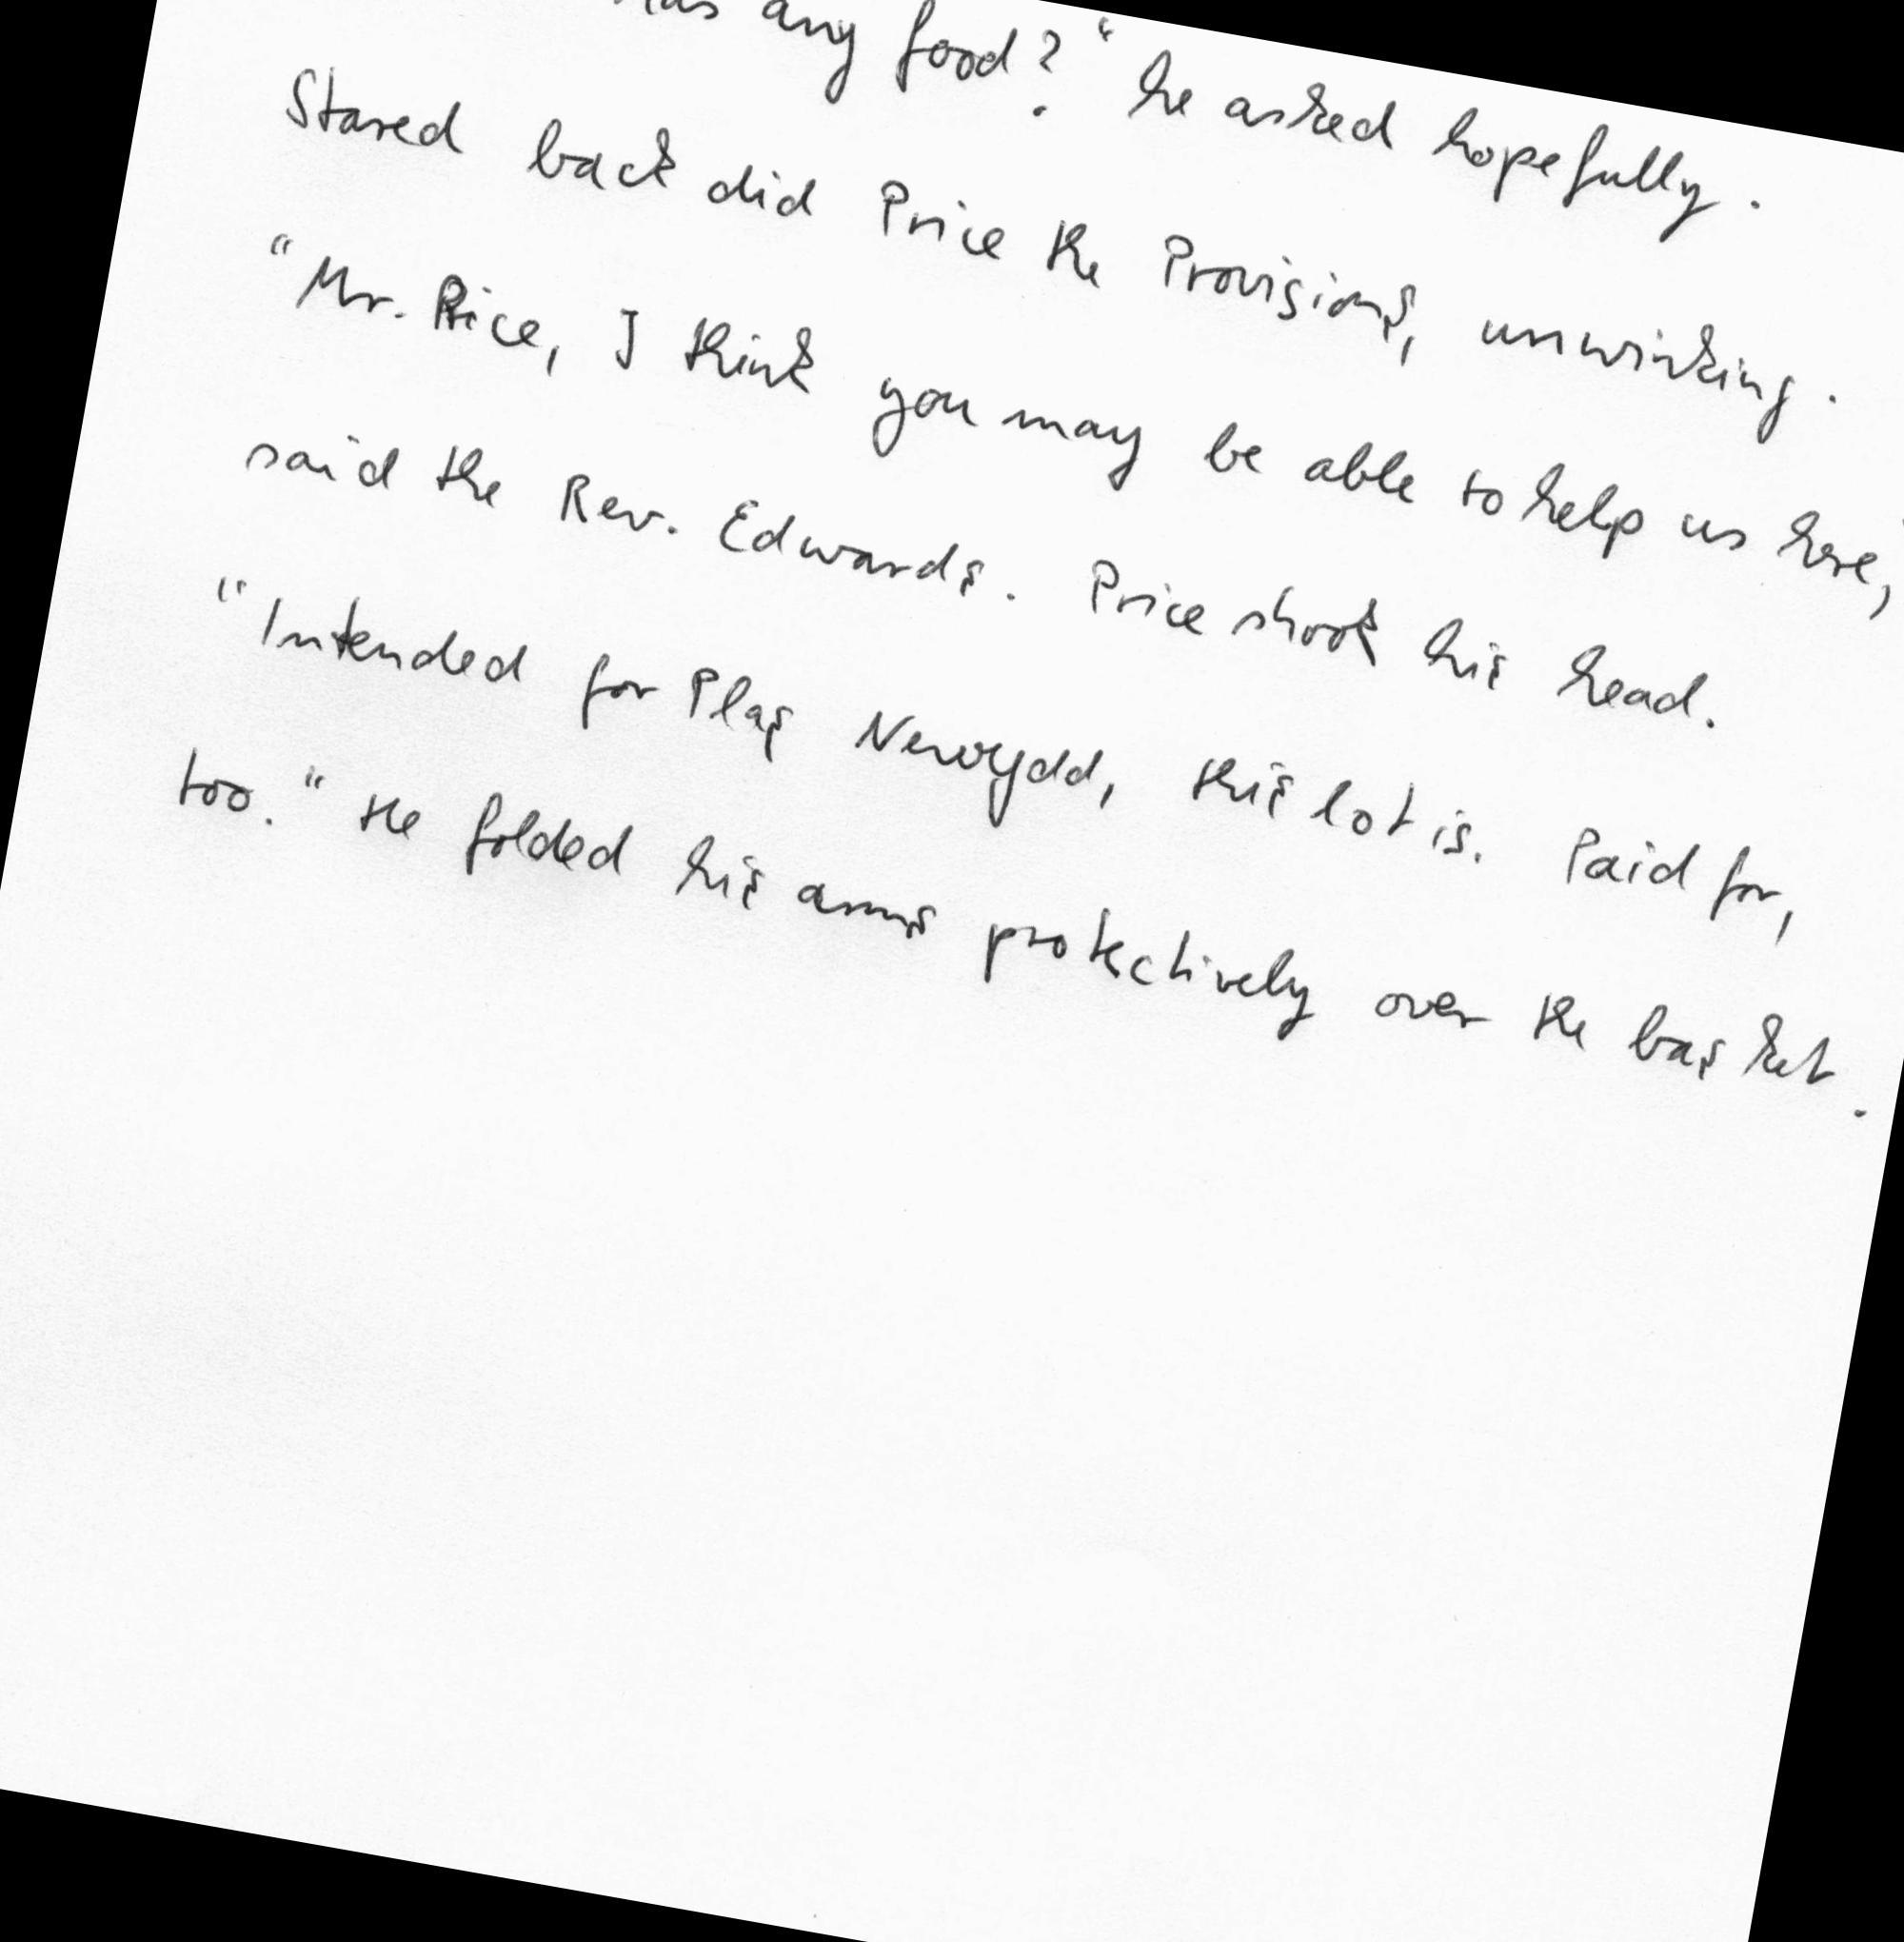 has any food?" he asked hopefully.
Stared back did Price the Provisions, unwinking.
"Mr. Price, I think you may be able to help us here,"
said the Rev. Edwards. Price shook his head.
"Intended for Plas Newydd, this lot is. Paid for,
too." He folded his arms protectively over the basket.